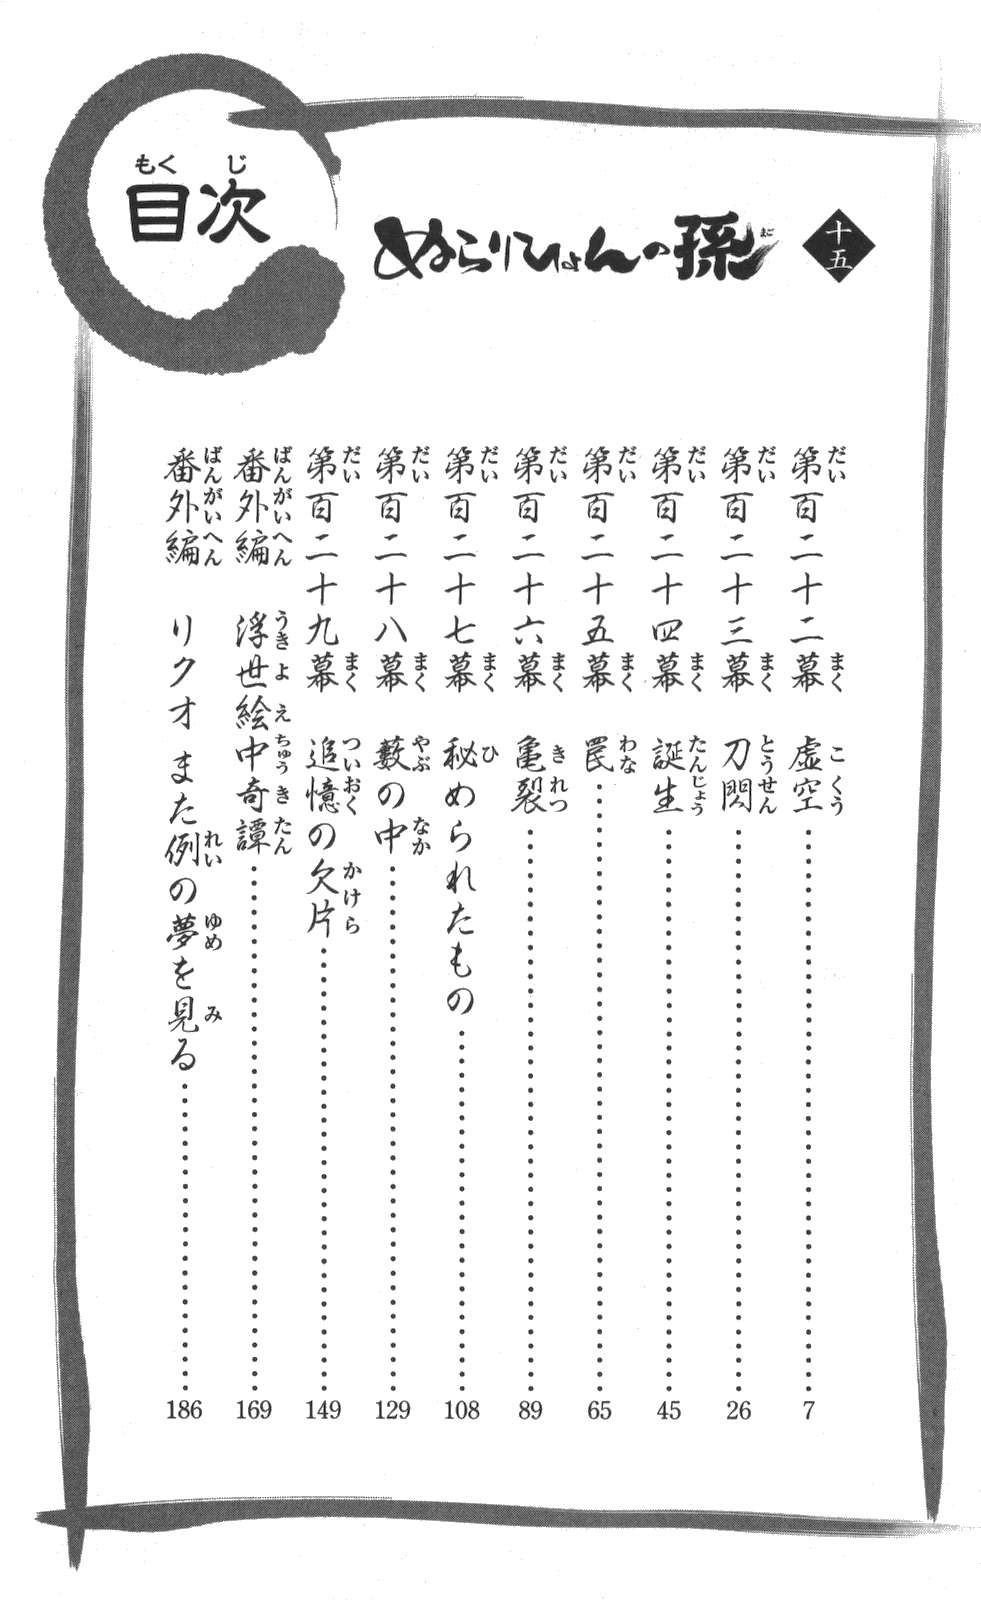 目次
もく じ
ぬらりひょんの孫
まご
十五
第百二十二幕 虚空 7
だい まく こくう
第百二十三幕 刀閃 26
だい まく とうせん
第百二十四幕 誕生 45
だい まく たんじょう
第百二十五幕 罠 65
だい まく わな
第百二十六幕 亀裂 89
だい まく きれつ
第百二十七幕 秘められたもの 108
だい まく ひ
第百二十八幕 藪の中 129
だい まく やぶ なか
第百二十九幕 追憶の欠片 149
だい まく ついおく かけら
番外編 浮世絵中奇譚 169
ばんがいへん うきよえちゅうきたん
番外編 リクオ また例の夢を見る 186
ばんがいへん れい ゆめ み